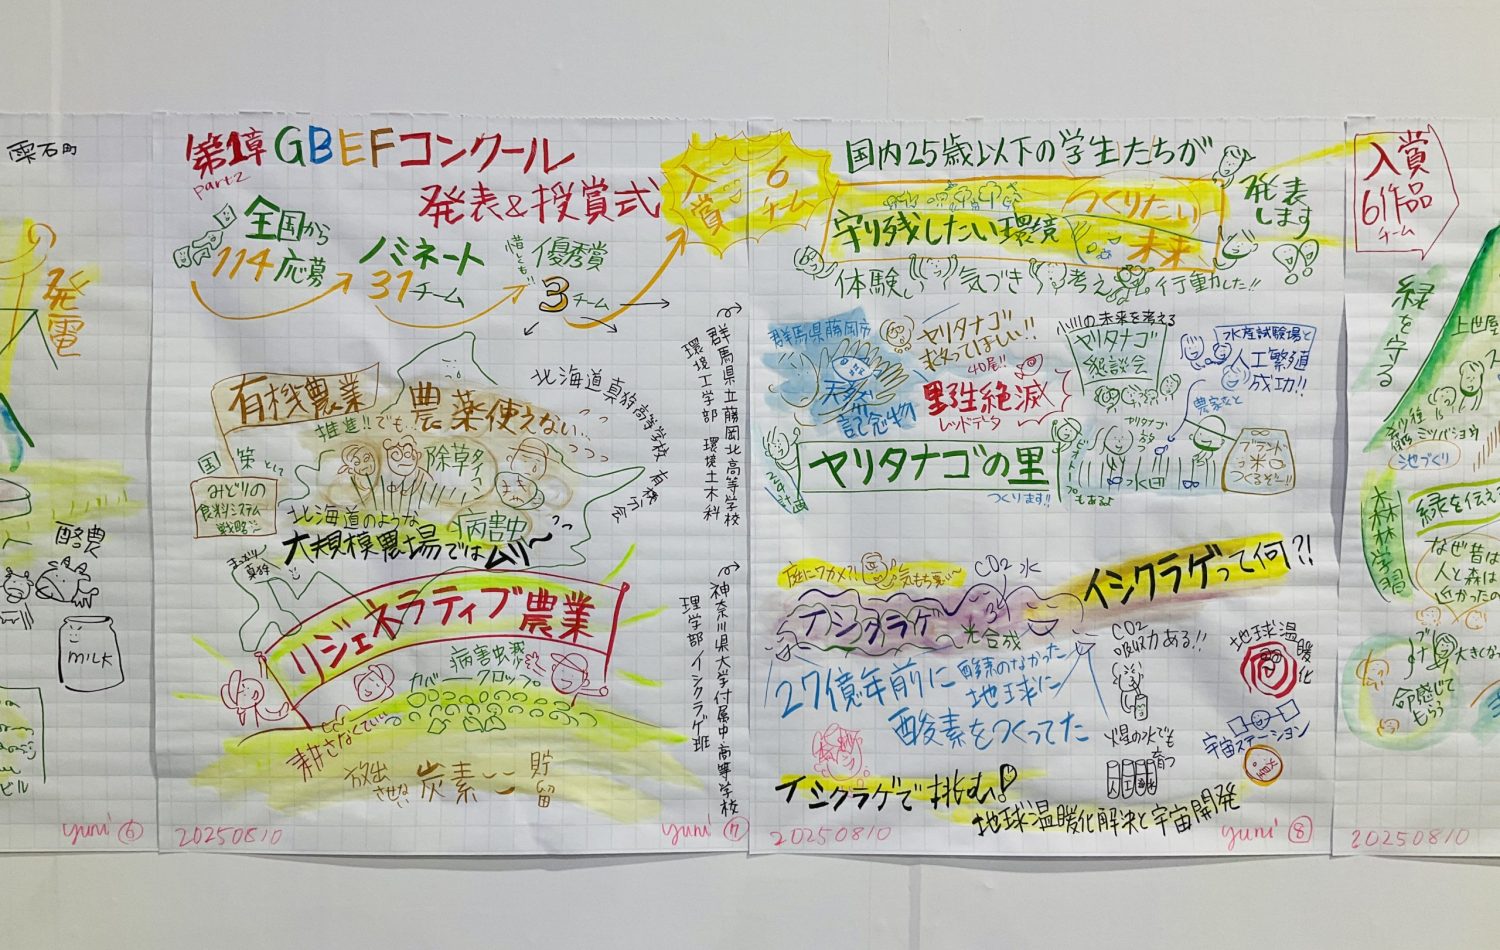 雫石町
発電
酪農
MILK
ビル
yuni ⑥
第1章 GBEFコンクール
part2
発表&授賞式
全国から
114応募
ノミネート
31チーム
惜しくも!!
優秀賞
3チーム
入賞
6チーム
有機農業
推進!!でも
農薬使えない…
国策として
みどりの
食料システム
戦略
除草
病害虫
北海道のような
大規模農場ではムリ〜
北海道真狩高等学校
リジェネラティブ農業
病害虫減
カバークロップ
耕さなくていい
放出させない
炭素
貯留
20250810
yuni ⑦
群馬県立藤岡北高等学校
環境工学部 環境土木科
神奈川県大学付属中高等学校
理学部 イシクラゲ班
国内25歳以下の学生たちが
守り残したい環境
つくりたい
未来
発表
します
体験 気づき 考え 行動した!!
群馬県藤岡市
天然
記念物
ヤリタナゴ
救ってほしい!!
40尾!!
野生絶滅
レッドデータ
小川の未来を考える
ヤリタナゴ
懇談会
水産試験場と
人工繁殖
成功!!
農家と
ヤリタナゴの里
つくります!!
ビオトープもあるよ
水田
ブランド
米
つくるぞ〜!!
イシクラゲって何?!
庭にワカメ?!
気もち悪い〜
CO2 水
イシクラゲ
光合成
27億年前に
酸素のなかった
地球に
酸素をつくってた
CO2
吸収力ある!!
地球温暖化
火星の水でも
育つ
宇宙ステーション
イシクラゲで挑む!
地球温暖化解決と宇宙開発
20250810
yuni ⑧
入賞
6作品
チーム
緑を守る
ミツバショウ
池づくり
森林学習
緑を伝え
なぜ昔は
人と森は
近かったの
大きくな
命感じて
もらう
20250810